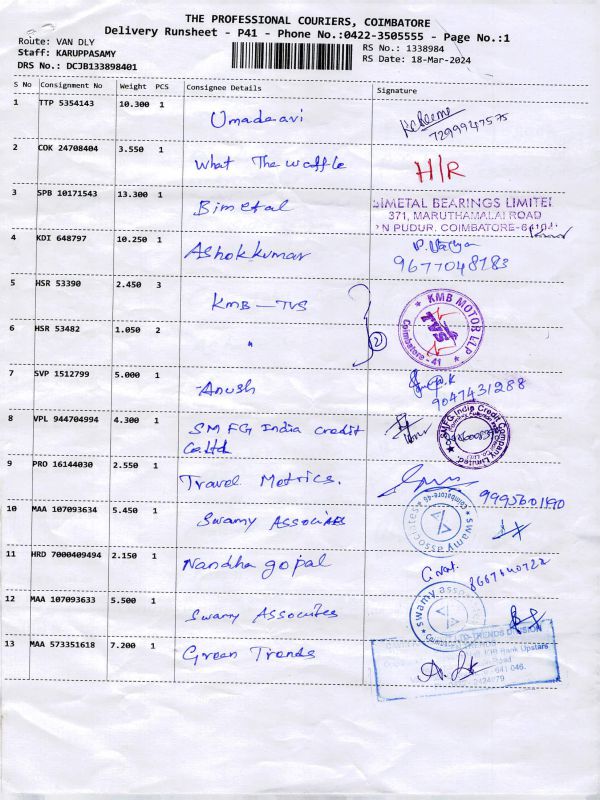 THE PROFESSIONAL COURIERS, COIMBATORE
Delivery Runsheet - P41 - Phone No.:0422-3505555 - Page No.:1
Route: VAN DLY
Staff: KARUPPASAMY
DRS No.: DCJB133898401
RS No.: 1338984
RS Date: 18-Mar-2024
S No Consignment No Weight PCS Consignee Details Signature
1 TTP 5354143 10.300 1 Umadeavi
7299947575
2 COK 24708404 3.550 1 What The waffle H/R
3 SPB 10171543 13.300 1 Bimetal
BIMETAL BEARINGS LIMITE
371, MARUTHAMALAI ROAD
N PUDUR, COIMBATORE-641041
4 KDI 648797 10.250 1 Ashokkumar
9677048283
5 HSR 53390 2.450 3 KMB - TVS
KMB MOTOR LLP
TVS
Coimbatore - 41
6 HSR 53482 1.050 2 " 2
7 SVP 1512799 5.000 1 Anush
9047431288
8 VPL 944704994 4.300 1 SMFG India Credit
Co Ltd
SMFG India Credit Company Limited
9 PRO 16144030 2.550 1 Travel Metrics.
9995601190
10 MAA 107093634 5.450 1 Swamy Associates
swamy associates
Coimbatore-46
11 HRD 7000409494 2.150 1 Nandha gopal
12 MAA 107093633 5.500 1 Swamy Associates
swamy asso
13 MAA 573351618 7.200 1 Green Trends
CO-TRENDS DIVISION
Bank Upstars
Road
641 046.